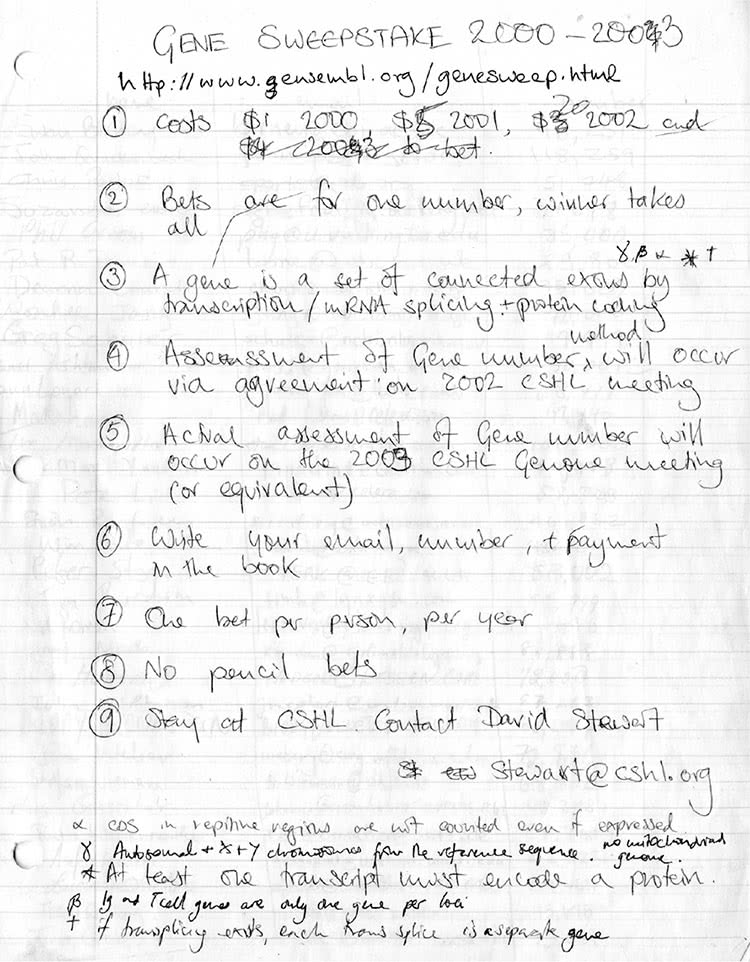 GENE SWEEPSTAKE 2000 – 2003
http://www.ensembl.org/genesweep.html
① Costs $1 2000 $5 2001, $20 2002 and
to bet.
② Bets are for one number, winner takes
all
γ, β α * †
③ A gene is a set of connected exons by
transcription/mRNA splicing + protein coding
method
④ Assessment of Gene number, will occur
via agreement on 2002 CSHL meeting
⑤ Actual assessment of Gene number will
occur on the 2003 CSHL Genome meeting
(or equivalent)
⑥ Write your email, number, + payment
in the book
⑦ One bet per person, per year
⑧ No pencil bets
⑨ Stay at CSHL. Contact David Stewart
Stewart@cshl.org
α CDS in repitive regions are not counted even if expressed
γ Autosomal + X + Y chromosomes from the reference sequence. no mitochondrial
genome.
* At least one transcript must encode a protein.
β Ig and Tcell genes are only one gene per loci
† if transplicing exists, each trans splice is a separate gene